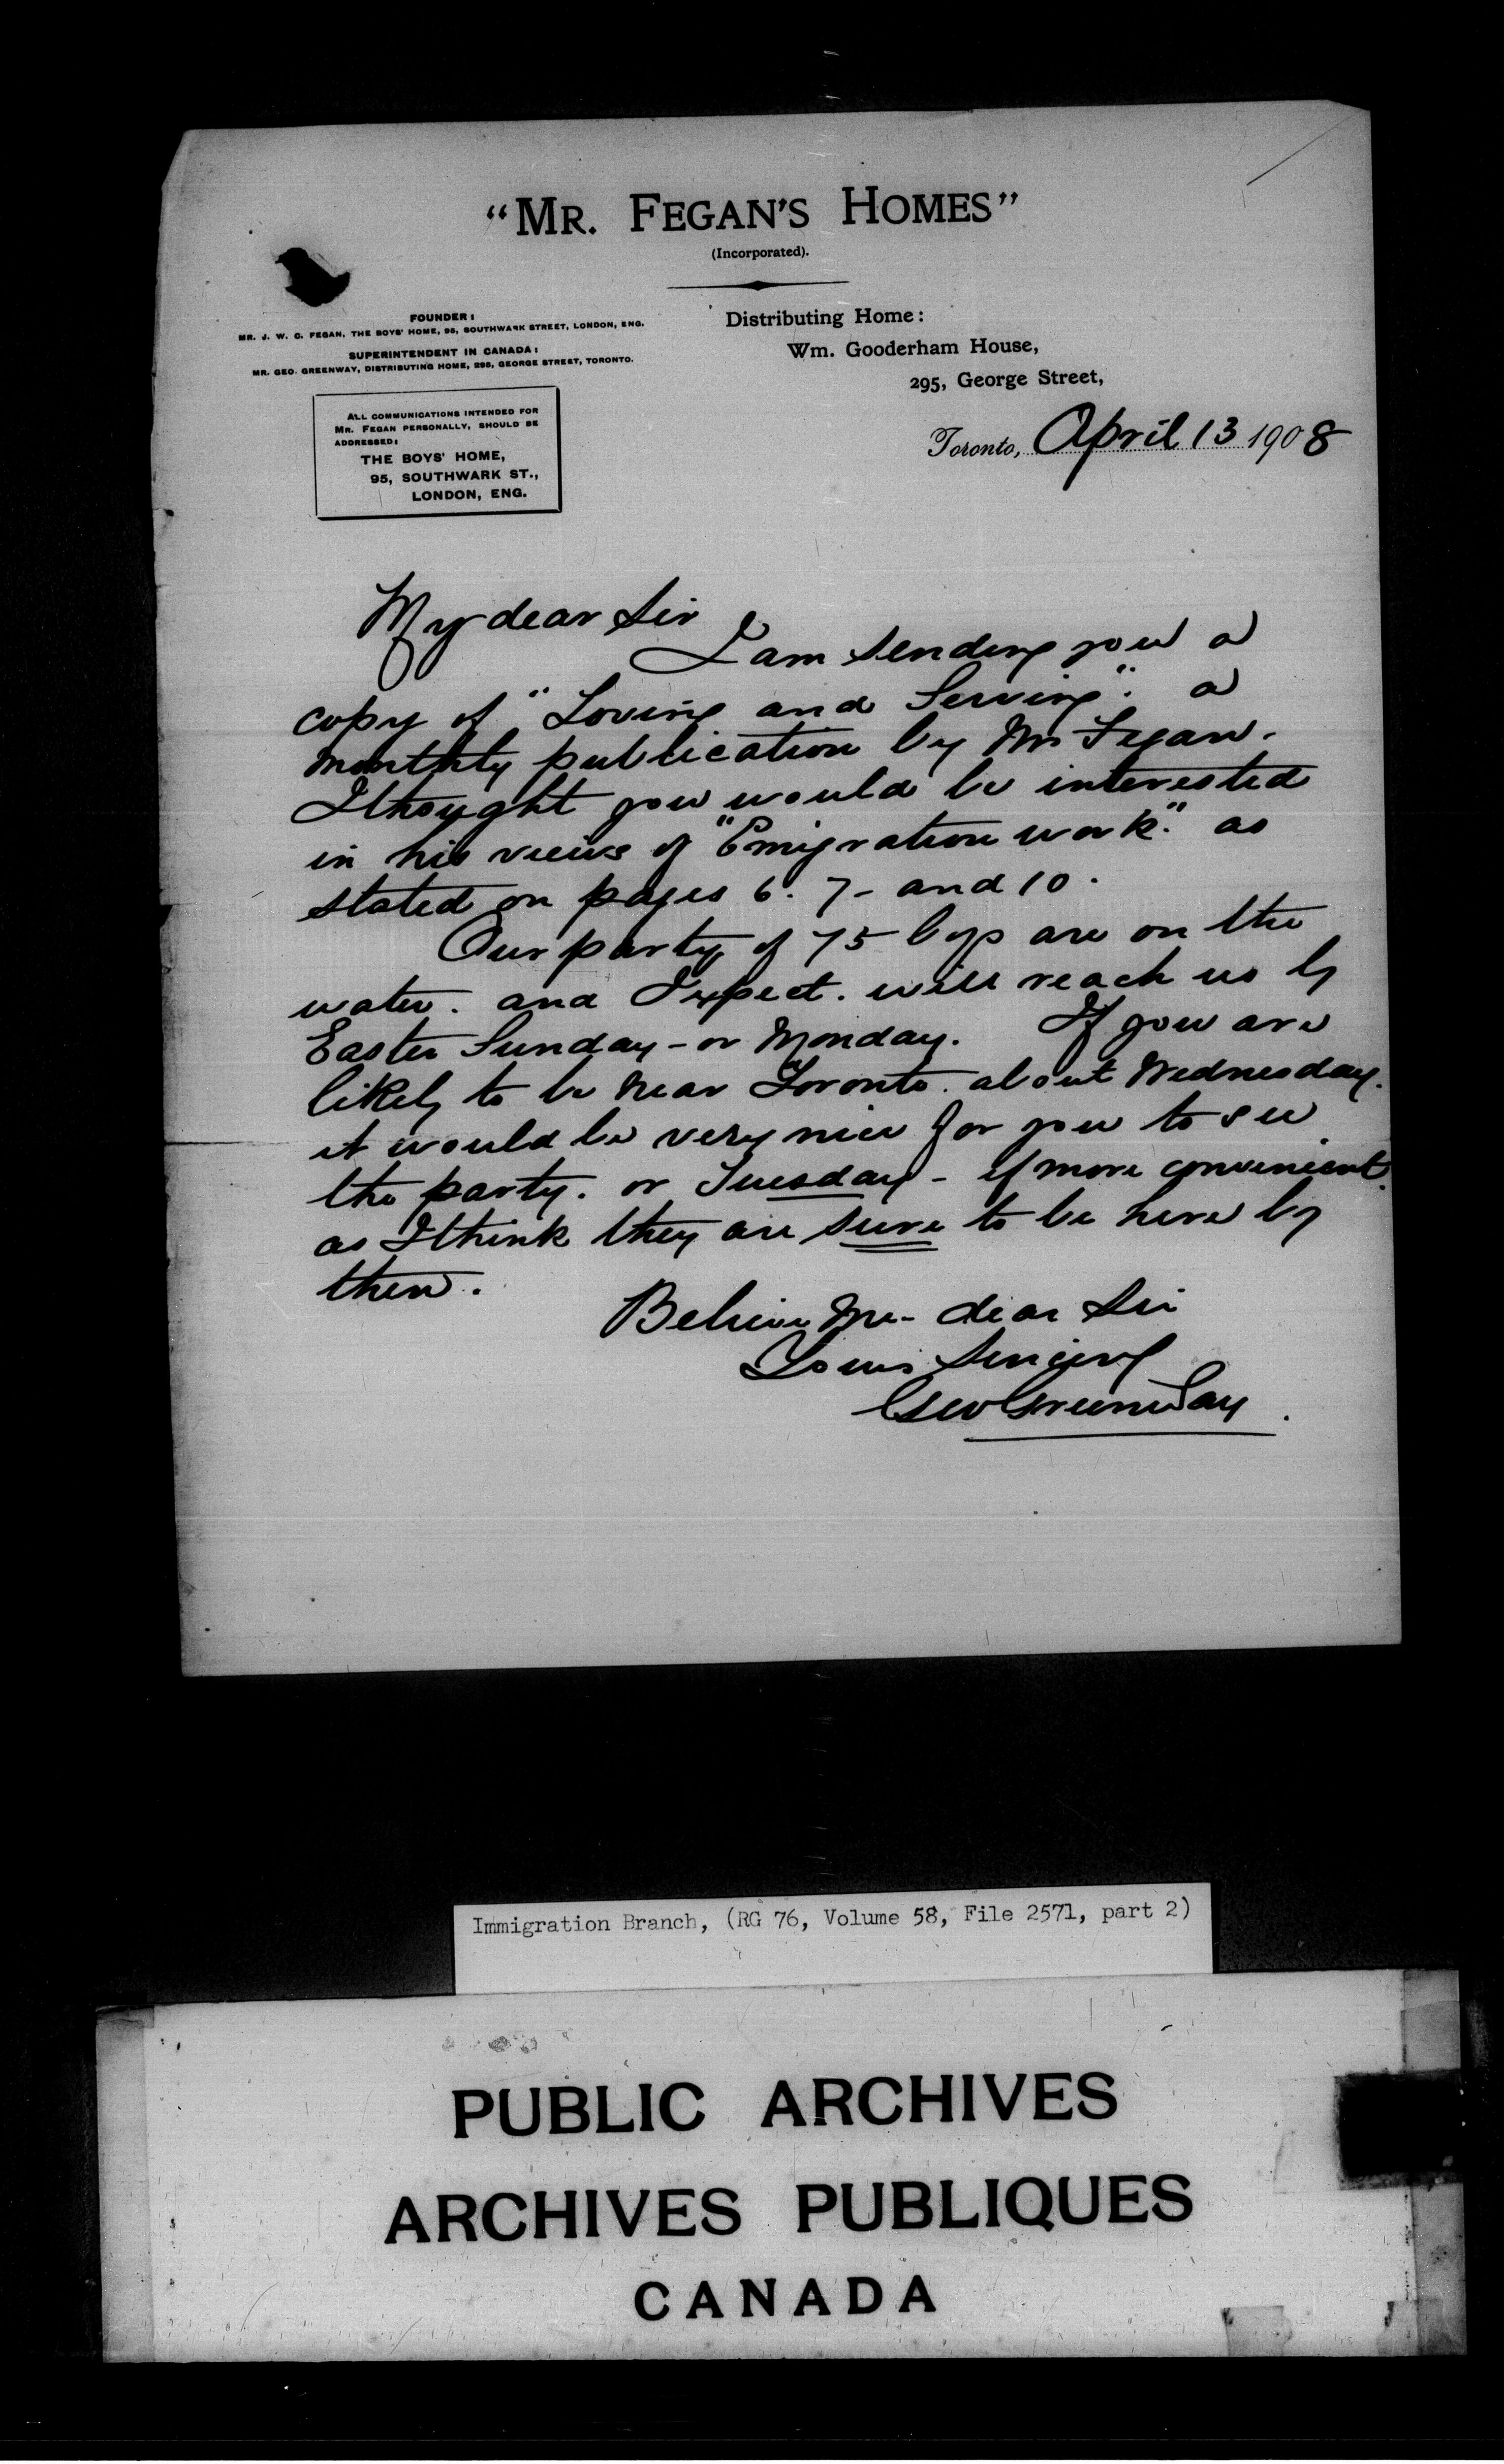 “MR. FEGAN'S HOMES”
(Incorporated).
FOUNDER:
MR. J. W. C. FEGAN, THE BOYS' HOME, 95, SOUTHWARK STREET, LONDON, ENG.
SUPERINTENDENT IN CANADA:
MR. GEO. GREENWAY, DISTRIBUTING HOME, 295, GEORGE STREET, TORONTO.
ALL COMMUNICATIONS INTENDED FOR
MR. FEGAN PERSONALLY, SHOULD BE
ADDRESSED:
THE BOYS' HOME,
95, SOUTHWARK ST.,
LONDON, ENG.
Distributing Home:
Wm. Gooderham House,
295, George Street,
Toronto, April 13 1908
My dear Sir
I am sending you a
copy of "Loving and Serving". a
monthly publication by Mr Fegan.
I thought you would be interested
in his views of "Emigration work." as
stated on pages 6. 7- and 10.
Our party of 75 boys are on the
water. and I expect. will reach us by
Easter Sunday - or Monday. If you are
likely to be near Toronto. about Wednesday.
it would be very nice for you to see
the party. or Tuesday - if more convenient.
as I think they are sure to be here by
then.
Believe me - dear Sir
Yours Sincerely
Geo Greenway.
Immigration Branch, (RG 76, Volume 58, File 2571, part 2)
PUBLIC ARCHIVES
ARCHIVES PUBLIQUES
CANADA